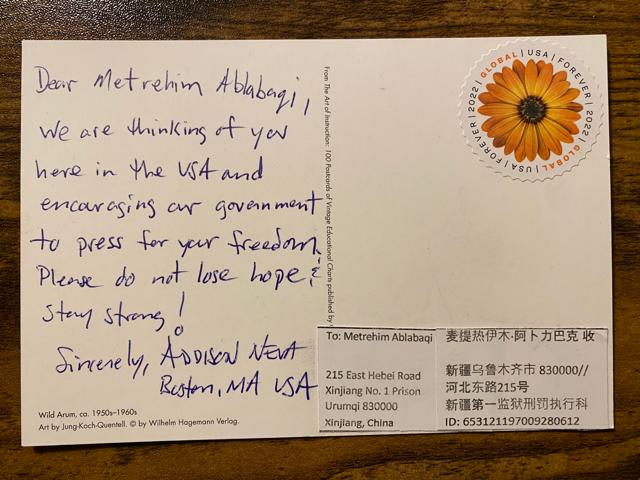 Dear Metrehim Ablabaqi,
we are thinking of you
here in the USA and
encouraging our government
to press for your freedom.
Please do not lose hope, &
stay strong!
Sincerely, ADDISON NEVA
Boston, MA USA
Wild Arum, ca. 1950s–1960s
Art by Jung-Koch-Quentell. © by Wilhelm Hagemann Verlag.
From The Art of Instruction: 100 Postcards of Vintage Educational Charts published by
GLOBAL | USA | FOREVER | 2022 | GLOBAL | USA | FOREVER | 2022 |
To: Metrehim Ablabaqi
215 East Hebei Road
Xinjiang No. 1 Prison
Urumqi 830000
Xinjiang, China
麦提热伊木·阿卜力巴克 收
新疆乌鲁木齐市 830000//
河北东路215号
新疆第一监狱刑罚执行科
ID: 653121197009280612